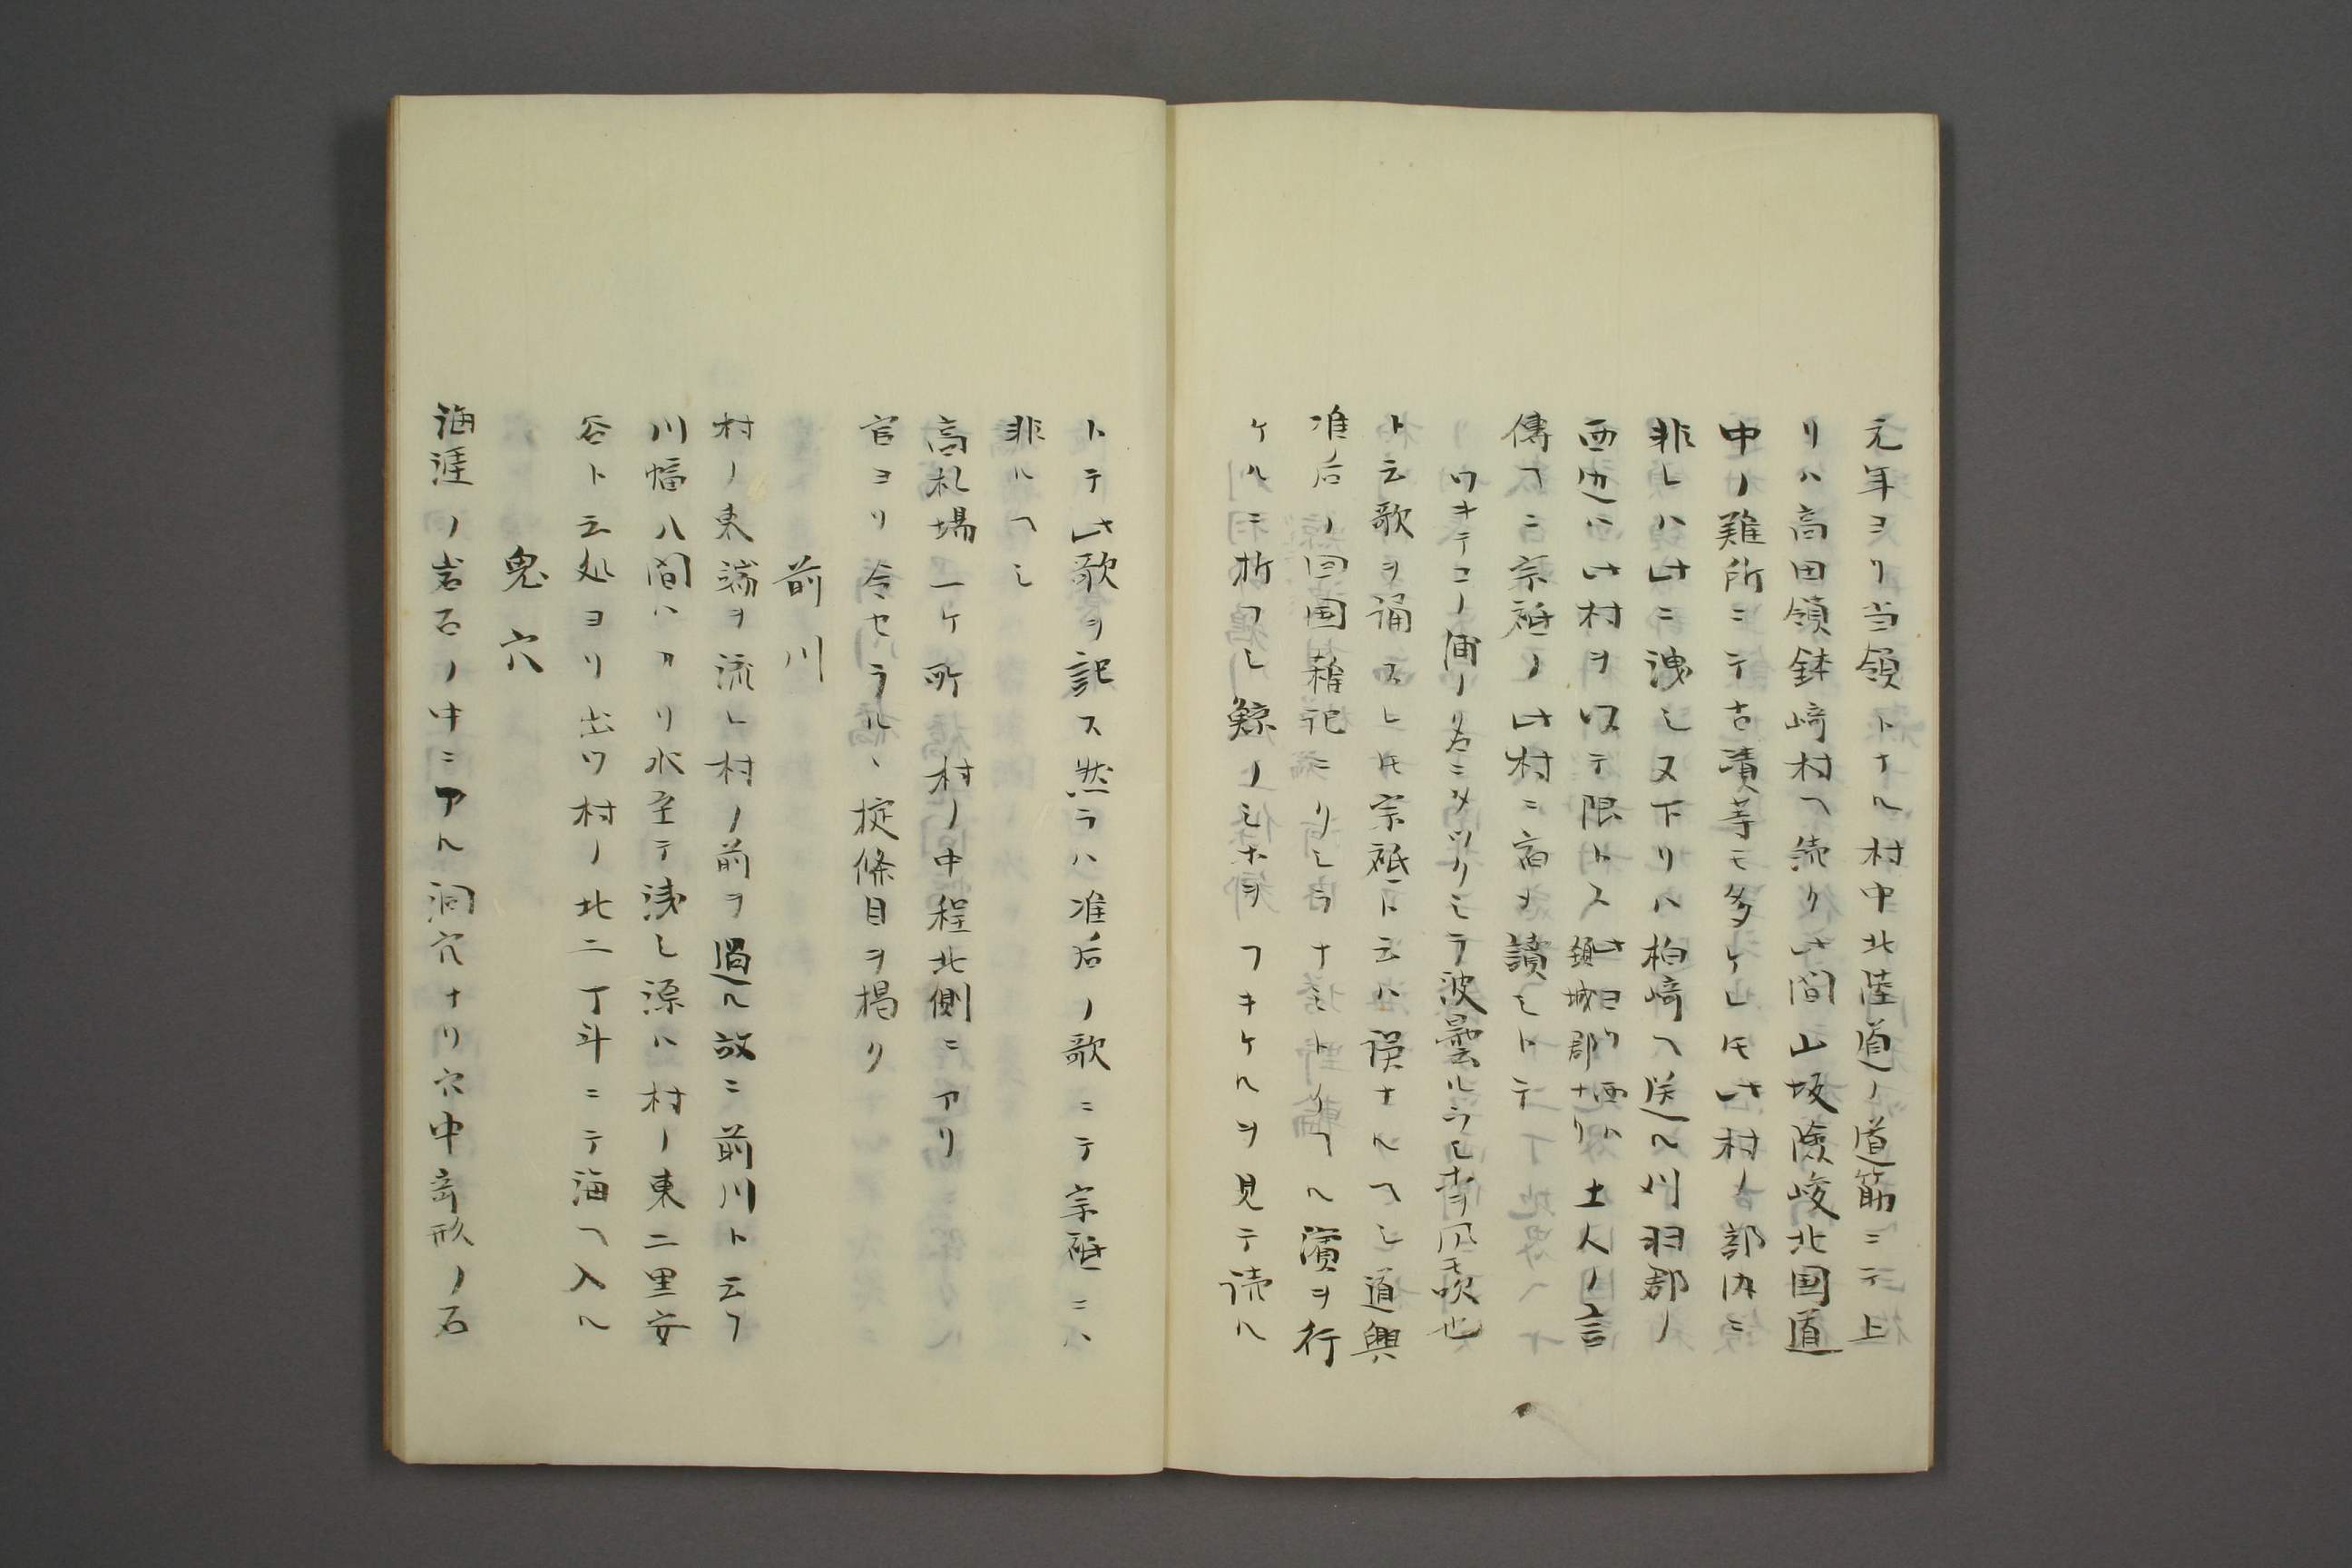 元年ヨリ当領トナル村中北陸道ノ道筋ニテ上
リハ高田領鉢﨑村ヘ続ク此間山坂険峻北国道
中ノ難所ニテ古漬等モ多ケレ𪜈此村ノ部内ニ
非レハ此ニ洩し又下リハ柏﨑ヘ送ル刈羽郡ノ
西辺ハ此村ヲ以テ限トス此ヨリ西ハ頚城郡ナリ土人ノ言
傳フニ宗祗ノ此村ニ宿メ讀シトテ
ワキテコノ浦ノ名ニタツクミテ波曇ルラし青凩モ吹也
ト云歌ヲ誦スレ𪜈宗祗ト云ハ誤ナルヘシ道興
准后ノ回国雑記ニクシラナミトイヘル濱ヲ行
ケルニ折フし鯨ノシホヲフキケルヲ見テ読ル
トテ此歌ヲ記ス然ラハ准后ノ歌ニテ宗祗ニハ
非ルヘし
高札場一ケ所村ノ中程北側ニアリ
官ヨリ令セラルヽ掟條目ヲ掲ク
前川
村ノ東端ヲ流レ村ノ前ヲ過ル故ニ前川ト云フ
川幅八間ハカリ水至テ浅し源ハ村ノ東二里女
谷ト云処ヨリ出ツ村ノ北二丁斗ニテ海ヘ入ル
鬼穴
海涯ノ岩石ノ中ニアル洞穴ナリ穴中竒形ノ石